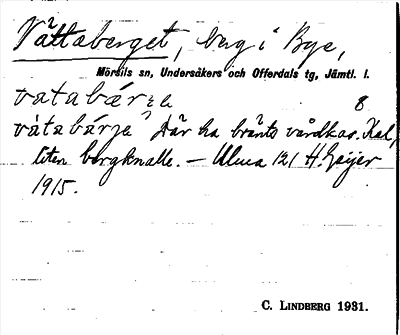 Vättaberget, berg i Bye,
Mörsils sn, Undersåkers och Offerdals tg, Jämtl. l.
vatabärʒe 8
vátabárʒa? Där ha bränts vårdkas. Kal,
liten bergknalle. – Ulma 121 H. Geijer
1915.
C. LINDBERG 1931.